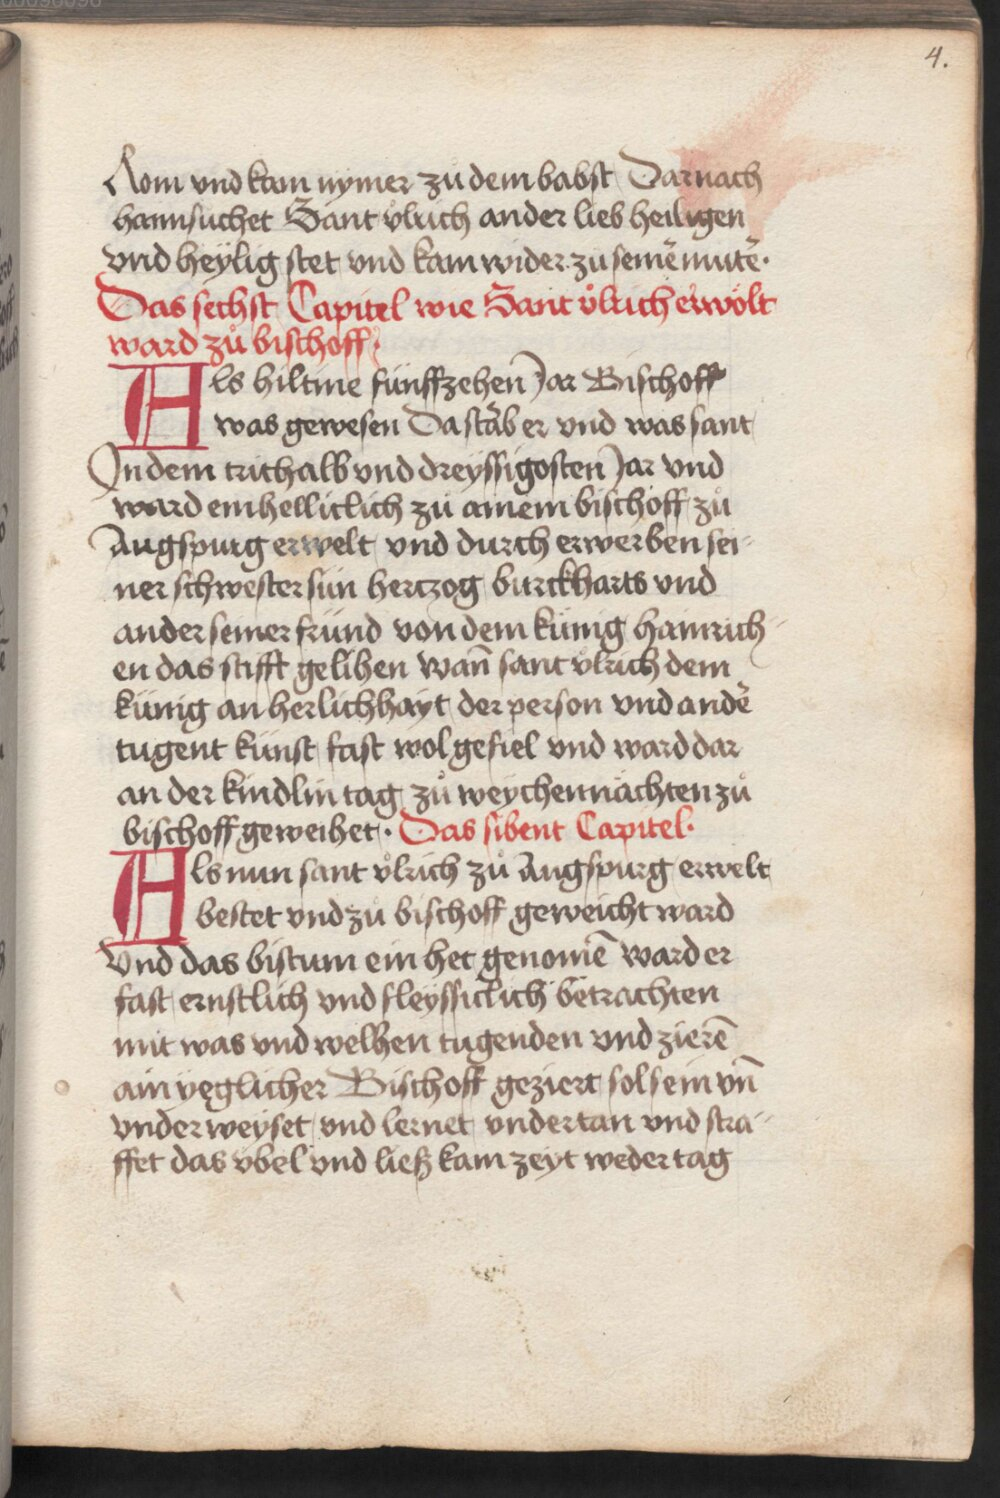 4.
Rom vnd kam nymer zů dem babst Darnach
haimsuchet Sant vlrich ander lieb heiligen
vnd heylig stet vnd kam wider zů seinē mutē·
Das sechst Capitel wie Sant vlrich erwölt
ward zů bischoff·
Als hiltine fünffzehen Jar Bischoff
was gewesen Da starb er vnd was sant
In dem trithalb vnd dreyssigosten Jar vnd
ward einhelliclich zů ainem bischoff zů
Augspurg erwelt vnd durch erwerben sei-
ner schwester sün hertzog burckharts vnd
ander seiner fründ von dem künig hainrich-
en das stifft gelihen wañ sant vlrich dem
künig an herlichhayt der person vnd andē
tugent kunst fast wol gefiel vnd ward dar
an der kindlin tag zů weychennächten zů
bischoff geweihet· Das sibent Capitel·
Als nun sant vlrich zů Augspurg erwelt
bestet vnd zů bischoff geweicht ward
Vnd das bistum ein het genomē ward er
fast ernstlich vnd fleyssiclich betrachten
mit was vnd welhen tugenden vnd zierē
ain yeglicher Bischoff geziert sol sein vñ
vnderweyset vnd lernet vndertan vnd stra-
ffet das vbel vnd ließ kain zeyt weder tag